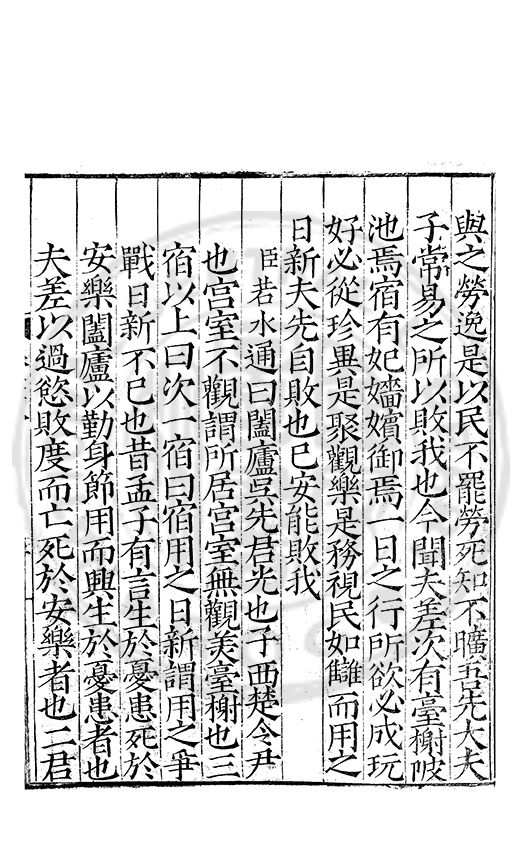 與之勞逸是以民不罷勞死知不曠吾先大夫
子常易之所以敗我也今聞夫差次有臺榭陂
池焉宿有妃嬙嬪御焉一日之行所欲必成玩
好必從珍異是聚觀樂是務視民如讎而用之
日新夫先自敗也已安能敗我
臣若水通曰闔廬吳先君光也子西楚令尹
也宮室不觀謂所居宮室無觀美臺榭也三
宿以上曰次一宿曰宿用之日新謂用之爭
戰日新不已也昔孟子有言生於憂患死於
安樂闔廬以勤身節用而興生於憂患者也
夫差以過慾敗度而亡死於安樂者也二君